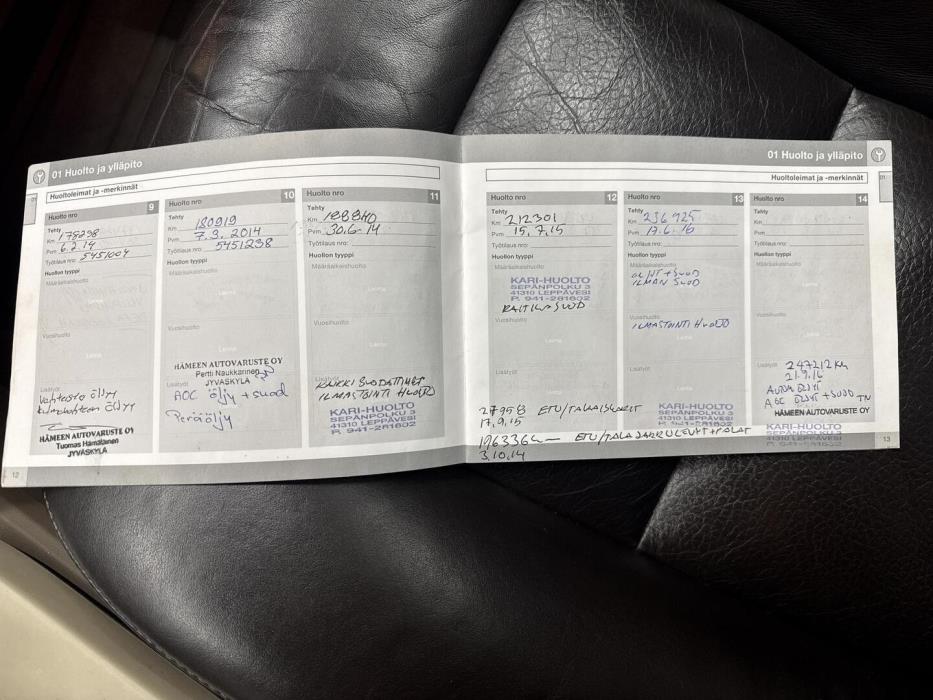 01 Huolto ja ylläpito
Huoltoleimat ja -merkinnät
Huolto nro 9
Tehty
Km 178298
Pvm 6.2.14
Työtilaus nro: 5451004
Huollon tyyppi
Määräaikaishuolto
Leima
Vuosihuolto
Leima
Lisätyöt
Vaihteisto öljyy
HÄMEEN AUTOVARUSTE OY
Tuomas Hämäläinen
JYVÄSKYLÄ
12
Huolto nro 10
Tehty
Km 180919
Pvm 7.3.2014
Työtilaus nro: 5451238
Huollon tyyppi
Määräaikaishuolto
Leima
Vuosihuolto
HÄMEEN AUTOVARUSTE OY
Pertti Naukkarinen
JYVÄSKYLÄ
Lisätyöt
AOC öljy + suod
Peräöljy
Huolto nro 11
Tehty
Km 188840
Pvm 30.6-14
Työtilaus nro:
Huollon tyyppi
Määräaikaishuolto
Leima
Vuosihuolto
Leima
Lisätyöt
KAIKKI SUODATTIMET
ILMASTOINTI HUOLTO
KARI-HUOLTO
SEPÄNPOLKU 3
41310 LEPPÄVESI
P. 941-281602
01 Huolto ja ylläpito
Huoltoleimat ja -merkinnät
Huolto nro 12
Tehty
Km 212301
Pvm 15.7.15
Työtilaus nro:
Huollon tyyppi
Määräaikaishuolto
KARI-HUOLTO
SEPÄNPOLKU 3
41310 LEPPÄVESI
P. 941-281602
RAITILMASUOD
Vuosihuolto
Leima
Lisätyöt
17.9.15
3.10.14
Huolto nro 13
Tehty
Km 236725
Pvm 17.6.16
Työtilaus nro:
Huollon tyyppi
Määräaikaishuolto
ÖLJYT + SUOD
ILMAN SUOD
Vuosihuolto
ILMASTOINTI HUOLTO
Leima
Lisätyöt
KARI-HUOLTO
SEPÄNPOLKU 3
41310 LEPPÄVESI
P. 941-281602
Huolto nro 14
Tehty
Km
Pvm
Työtilaus nro:
Huollon tyyppi
Määräaikaishuolto
Leima
Vuosihuolto
Leima
Lisätyöt
247212 km
21.9.16
AOC ÖLJYT + SUOD TN
HÄMEEN AUTOVARUSTE OY
KARI-HUOLTO
SEPÄNPOLKU 3
41310 LEPPÄVESI
13